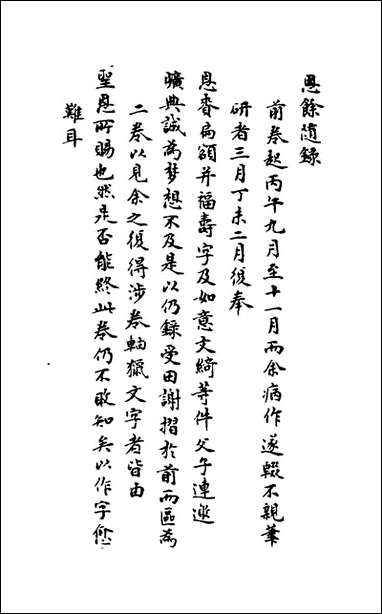 恩餘隨錄
前卷起丙午九月至十一月而余病作遂輟不親筆
研者三月丁未二月復奉
恩賚扁額并福壽字及如意文綺等件父子連遊
曠典誠為夢想不及是以仍錄受田謝摺於前而區為
二卷以見余之復得涉卷軸獵文字者皆由
聖恩所賜也然是否能終此卷仍不敢知矣以作字愈
難耳